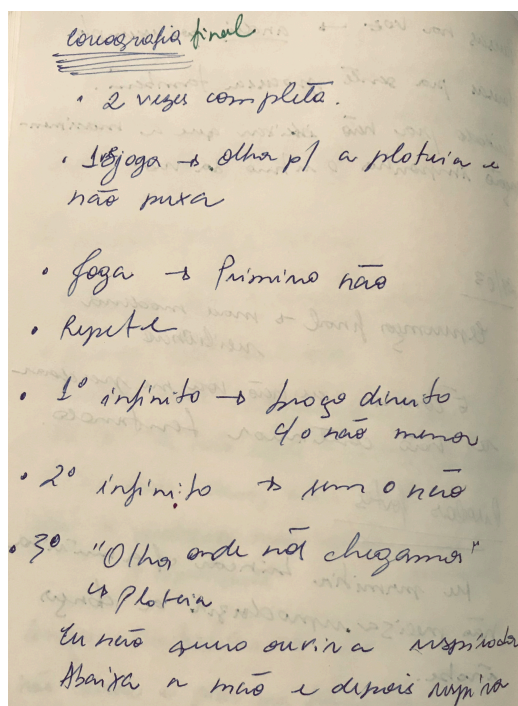 Coreografia final
• 2 vezes completa.
• 1º joga → olha p/ a plateia e
não puxa
• Joga → Primeiro não
• Repete
• 1º infinito → braço direito
c/o não menor
• 2º infinito → sem o não
• 3º "Olha onde nós chegamos"
↳ Plateia
Eu não quero ouvir a respirada
Abaixa a mão e depois respira